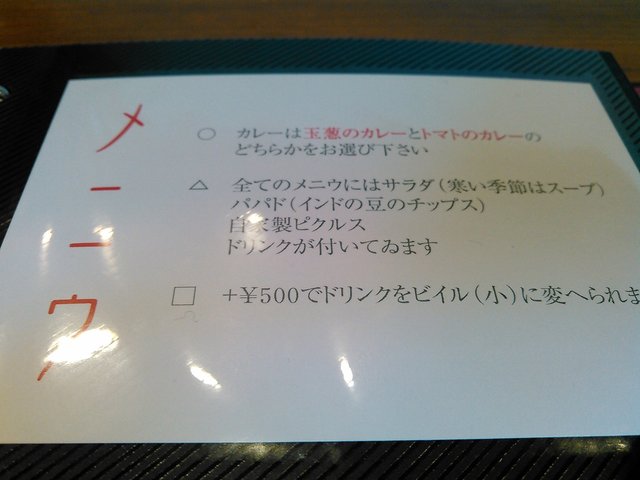 メニウ
○ カレーは玉葱のカレーとトマトのカレーの
どちらかをお選び下さい
△ 全てのメニウにはサラダ(寒い季節はスープ)
パパド(インドの豆のチップス)
自家製ピクルス
ドリンクが付いてゐます
□ +¥500でドリンクをビイル(小)に変へられま